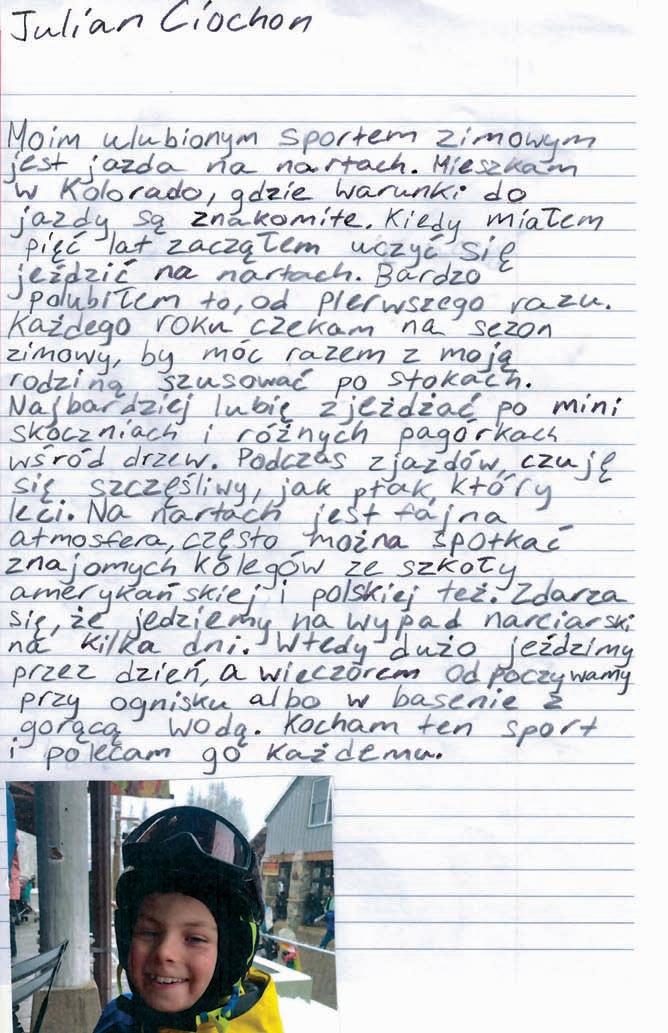 Julian Ciochon
Moim ulubionym sportem zimowym
jest jazda na nartach. Mieszkam
w Kolorado, gdzie warunki do
jazdy są znakomite. Kiedy miałem
pięć lat zacząłem uczyć się
jeździć na nartach. Bardzo
polubiłem to, od pierwszego razu.
Każdego roku czekam na sezon
zimowy, by móc razem z moją
rodziną szusować po stokach.
Najbardziej lubię zjeżdżać po mini
skoczniach i różnych pagórkach
wśród drzew. Podczas zjazdów, czuję
się szczęśliwy, jak ptak, który
leci. Na nartach jest fajna
atmosfera, często można spotkać
znajomych kolegów ze szkoły
amerykańskiej i polskiej też. Zdarza
się, że jedziemy na wypad narciarski
na kilka dni. Wtedy dużo jeździmy
przez dzień, a wieczorem odpoczywamy
przy ognisku albo w basenie z
gorącą wodą. Kocham ten sport
i polecam go każdemu.